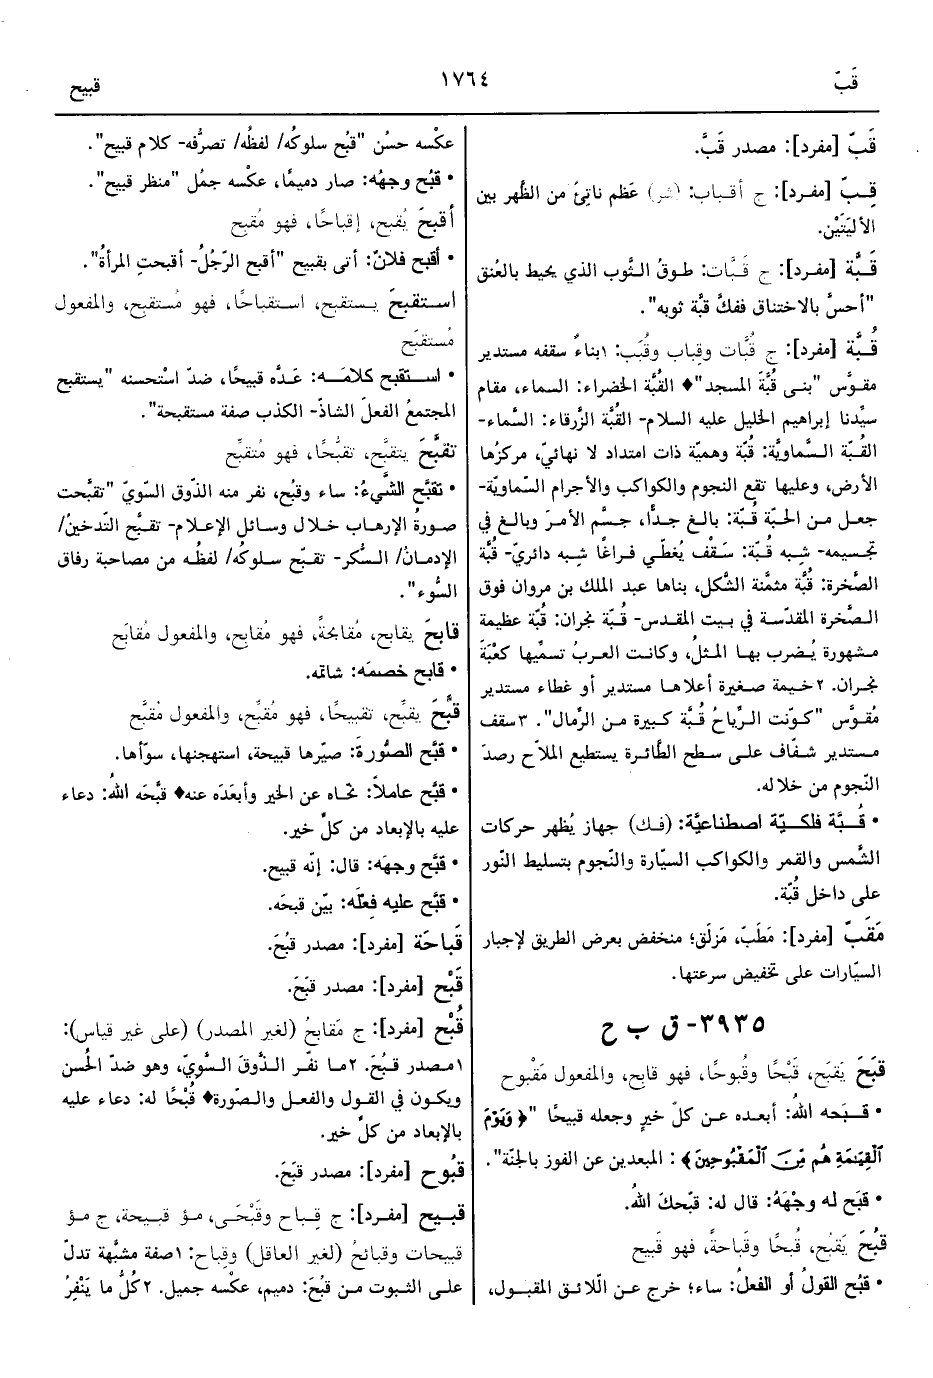 قَبّ
١٧٦٤
قبيح
قَبّ [مفرد]: مصدر قَبَّ.
قِـبّ [مفرد]: ج أقـباب: (شر) عَظم ناتِئ من الظَّهر بين
الأليَتَيْن.
قَبَّة [مفرد]: ج قَـبَّات: طـوقُ الثَّوب الذي يحيط بالعُنق
"أحسَّ بالاختناق ففكَّ قبَّة ثوبه".
قُـبَّة [مفرد]: ج قُبَّات وقِباب وقُبَب: ١بناءٌ سقفه مستدير
مقـوَّس "بنـى قُبَّةَ المسجد"♦ القُبَّة الخضراء: السماء، مقام
سيِّدنا إبراهيم الخليل عليه السلام- القُبَّة الزَّرقاء: السَّماء-
القـبَّة السَّماويَّة: قُبَّة وهميَّة ذات امتداد لا نهائيّ، مركزُها
الأرض، وعليها تقع النجوم والكواكب والأجرام السَّماويَّة-
جعل مـن الحَبَّة قُـبَّة: بالـغ جدًّا، جسَّم الأمرَ وبالغ في
تجسيمه- شِبه قُـبَّة: سَـقْف يُغطّي فـراغًا شِبه دائريّ- قُبَّة
الصَّخرة: قُبَّة مثمَّنة الشَّكل، بناها عبد الملك بن مروان فوق
الصَّخرة المقدّسة في بيت المقدس- قُـبَّة نجران: قُبَّة عظيمة
مشهورة يُضرب بهـا المـثلُ، وكانـت العربُ تسمِّيها كعْبَةَ
نجران. ٢خيمة صغيرة أعلاها مستدير أو غطاء مستدير
مُقوَّس "كـوّنت الرِّياحُ قُبَّة كبيرة من الرِّمال". ٣سقف
مستدير شفَّاف على سطح الطَّائرة يستطيع الملاّح رصدَ
النّجوم من خلاله.
• قُـبَّة فلكيَّة اصطناعيَّة: (فـك) جهاز يُظهر حركات
الشَّمس والقمر والكواكب السيَّارة والنّجوم بتسليط النّور
على داخل قُبَّة.
مَقَبّ [مفرد]: مَطَبّ، مَزلَق؛ منخفض بعرض الطريق لإجبار
السيّارات على تخفيض سرعتها.
٣٩٣٥- ق ب ح
قبَحَ يَقبَح، قَبْحًا وقُبوحًا، فهو قابِح، والمفعول مَقْبوح
• قـبَـحه اللهُ: أبعـده عـن كلّ خيرٍ وجعله قبيحًا "﴿ وَيَوْمَ
ٱلْقِيَـٰمَةِ هُم مِّنَ ٱلْمَقْبُوحِينَ﴾: المبعدين عن الفوز بالجنّة".
• قبَح له وجْهَهُ: قال له: قبَّحكَ اللهُ.
قبُحَ يَقبُح، قُبحًا وقَباحةً، فهو قبيح
• قبُح القولُ أو الفعلُ: ساء؛ خرج عـن اللاّئـق المقبـول،
عكْسه حسُن "قبُح سلوكُه/ لفظُه/ تصرُّفه- كلام قبيح".
• قبُح وجهُه: صار دميمًا، عكْسه جمُل "منظر قبيح".
أقبحَ يُقبح، إقباحًا، فهو مُقبِح
• أقبح فلانٌ: أتى بقبيح "أقبح الرّجُلُ- أقبحتِ المرأةُ".
استقبحَ يستقبح، استقباحًا، فهو مُستقبِح، والمفعول
مُستقبَح
• اسـتقبح كلامَـه: عَـدَّه قبيحًا، ضدّ استْحسنه "يستقبح
المجتمعُ الفعلَ الشاذّ- الكذب صفة مستقبحة".
تقبَّحَ يتقبَّح، تقبُّحًا، فهو مُتقبِّح
• تقبَّح الشَّيءُ: ساء وقبُح، نفر منه الذّوق السّويّ "تقبَّحت
صورةُ الإرهاب خلال وسائل الإعلام- تقبَّح التّدخينُ/
الإدمانُ/ السُّكر- تقبّح سلوكُه/ لفظُه من مصاحبة رفاق
السُّوء".
قابحَ يقابح، مُقابحةً، فهو مُقابِح، والمفعول مُقابَح
• قابح خصمَه: شاتمه.
قبَّحَ يقبِّح، تقبيحًا، فهو مُقبِّح، والمفعول مُقبَّح
• قبَّح الصُّورةَ: صيّرها قبيحة، استهجنها، سوّأها.
• قبَّح عاملاً: نحّاه عن الخير وأبعَدَه عنه♦ قبَّحَه اللهُ: دعاء
عليه بالإبعاد من كلِّ خير.
• قبَّح وجهَه: قال: إنّه قبيح.
• قبَّح عليه فِعلَه: بيّن قبحَه.
قَباحَة [مفرد]: مصدر قبُحَ.
قَبْح [مفرد]: مصدر قبَحَ.
قُبْح [مفرد]: ج مَقابحُ (لغير المصدر) (على غير قياس):
١مصدر قـبُحَ. ٢مـا نفّـر الـذَّوقَ السَّويّ، وهو ضدّ الحُسن
ويكون في القول والفعل والصّورة♦ قُبْحًا له: دعاء عليه
بالإبعاد من كلِّ خير.
قُبُوح [مفرد]: مصدر قبَحَ.
قبـيح [مفـرد]: ج قِـباح وقَبْحَى، مـؤ قبـيحة، ج مـؤ
قبيحات وقبائحُ (لغير العاقل) وقِباح: ١صفة مشبَّهة تدلّ
علـى الثـبوت مـن قبُحَ: دميم، عكْسه جميل. ٢كُلُّ ما يَنْفِرُ